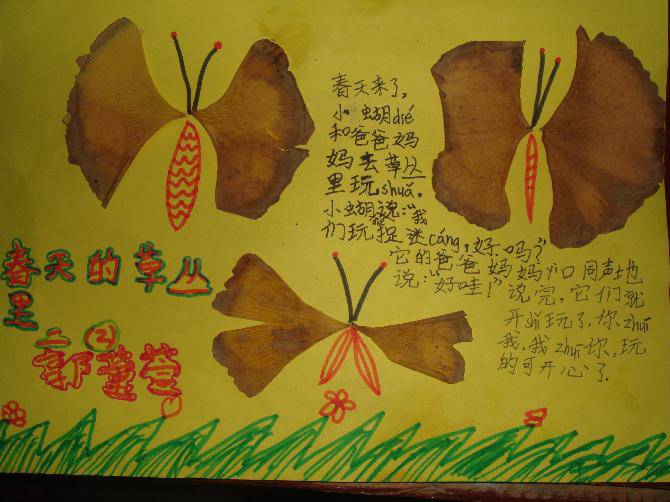 春天来了，
小蝴dié
和爸爸妈
妈去草丛
里玩shuǎ.
小蝴说："我
们玩捉迷cáng，好吗？"
它的爸爸妈妈yì口同声地
说："好哇！"说完，它们就
开shǐ玩了.你zhuī
我.我zhuī你，玩
的可开心了.
春天的草丛
里
二(2)
郭莹萱